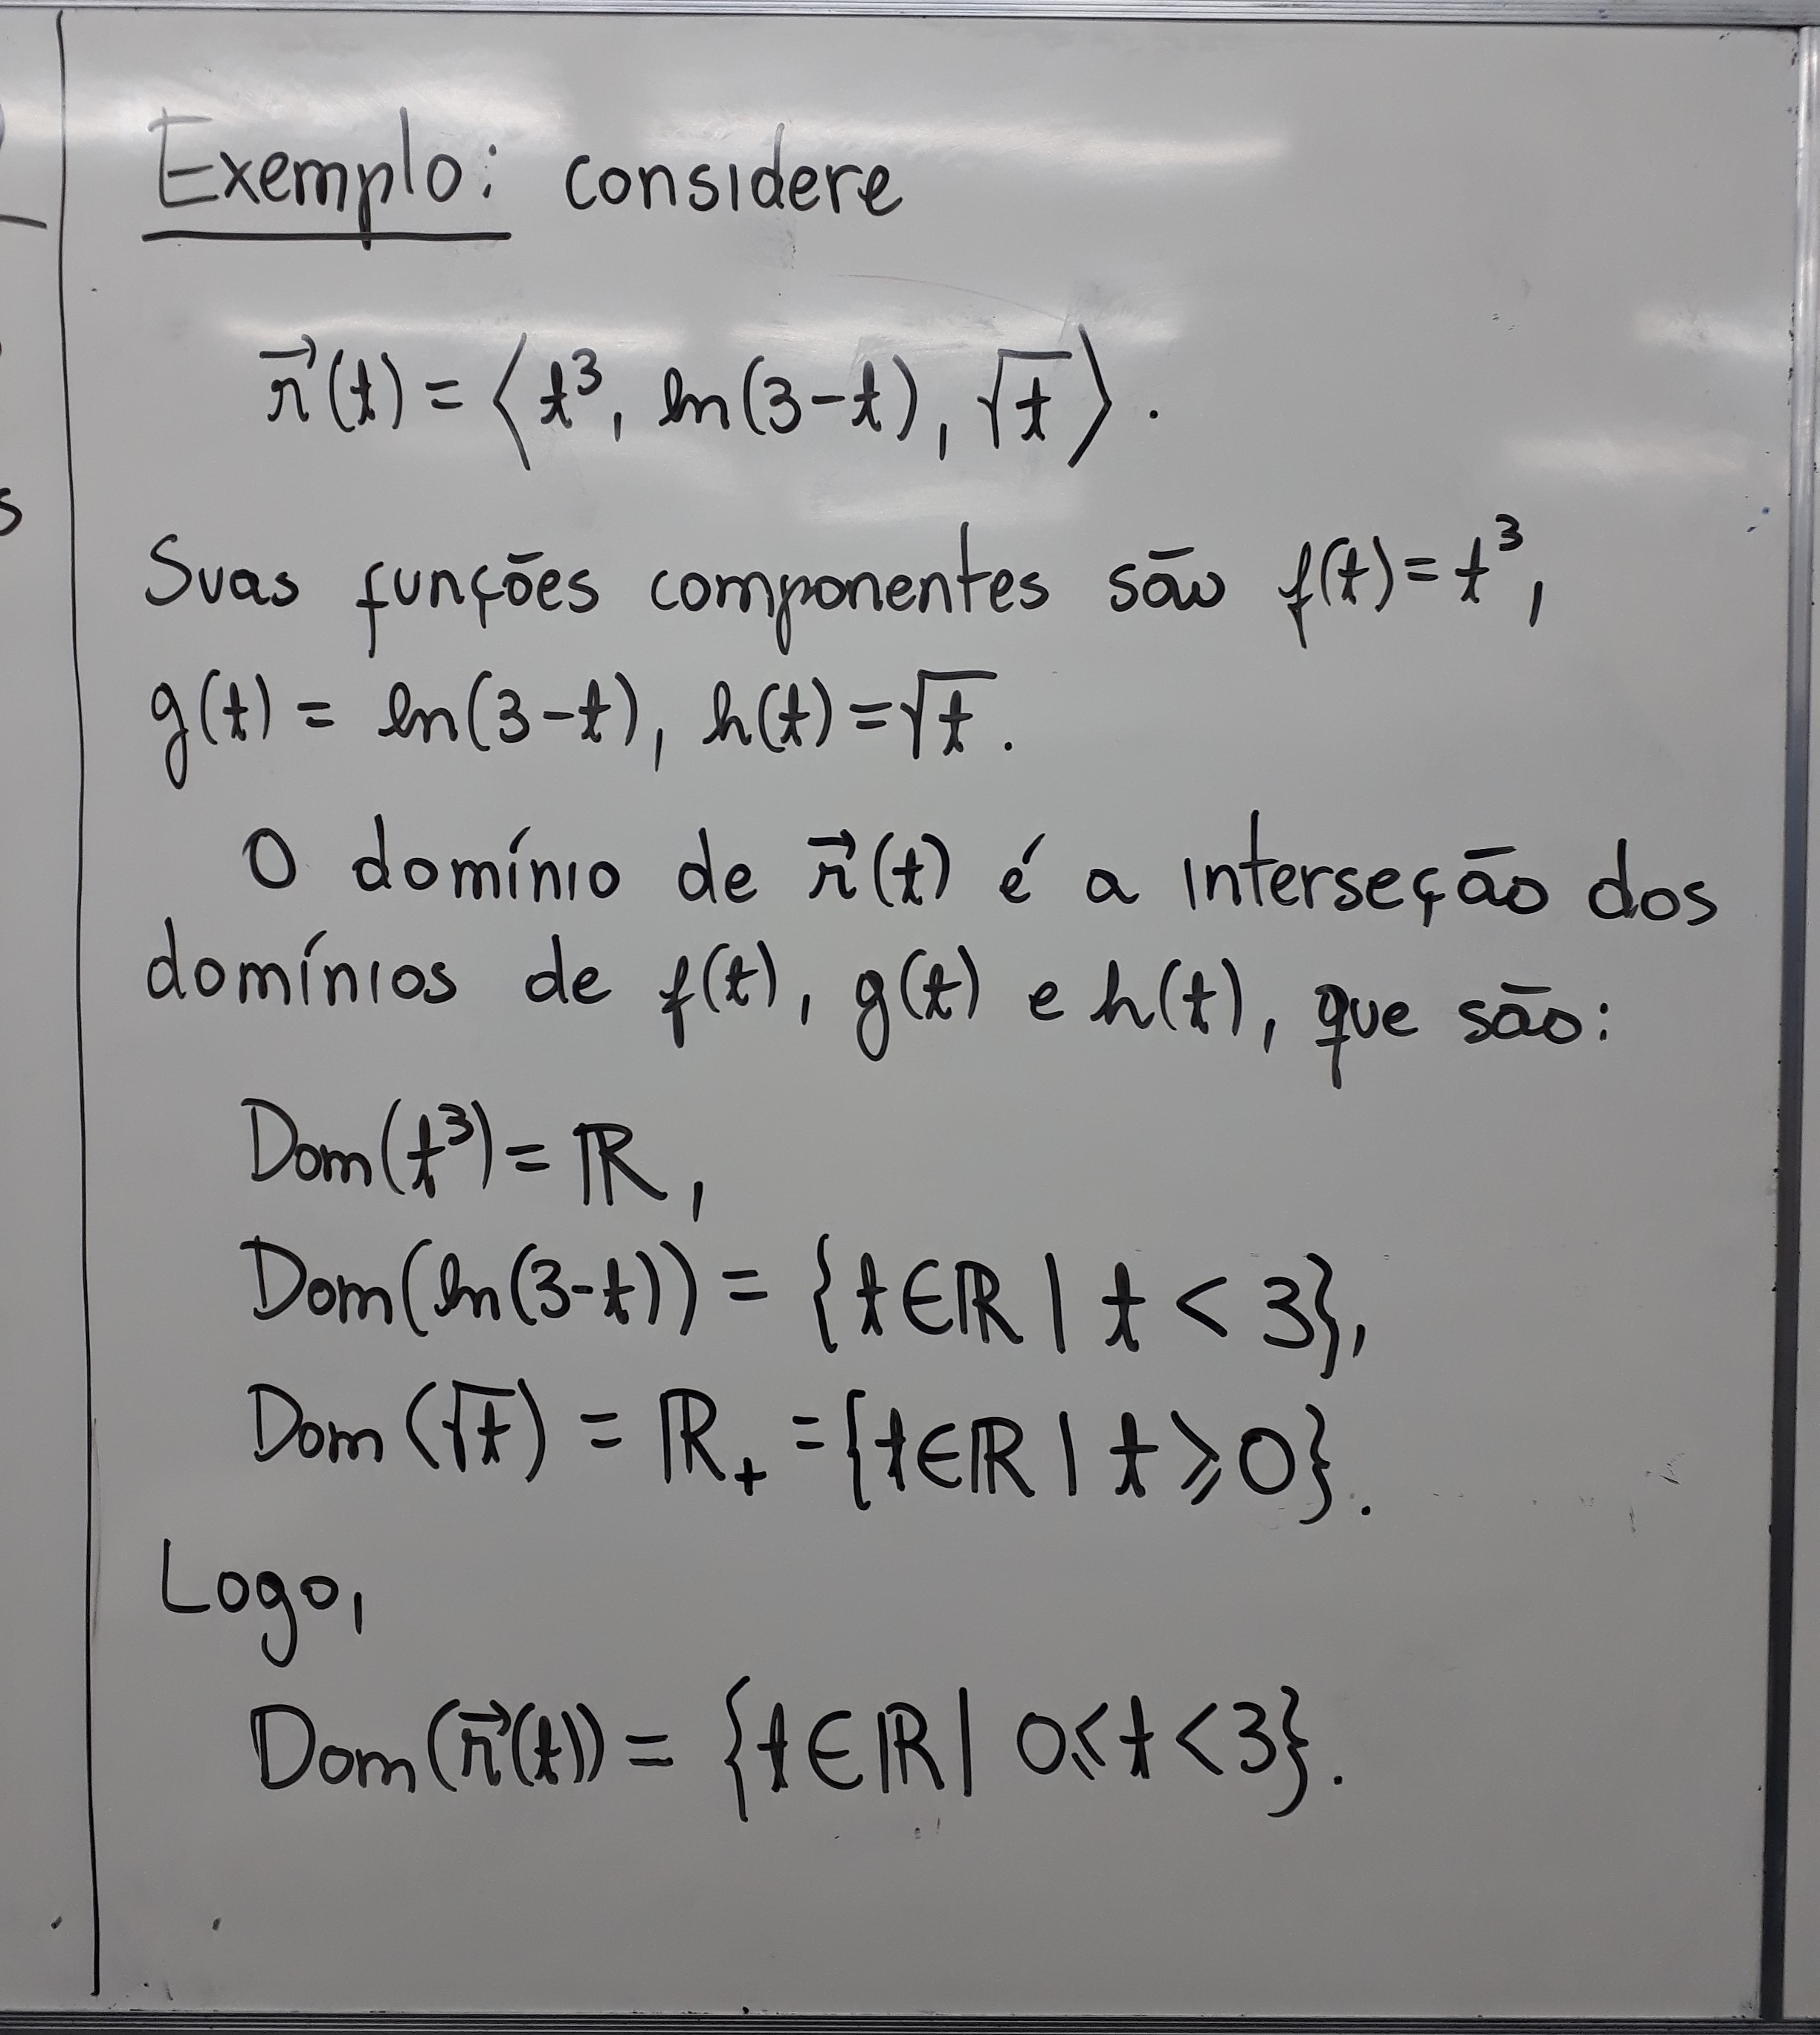 Exemplo: considere
r⃗(t) = ⟨t³, ln(3-t), √t⟩.
Suas funções componentes são f(t) = t³,
g(t) = ln(3-t), h(t) = √t.
O domínio de r⃗(t) é a interseção dos
domínios de f(t), g(t) e h(t), que são:
Dom(t³) = ℝ,
Dom(ln(3-t)) = {t∈ℝ | t < 3},
Dom(√t) = ℝ₊ = {t∈ℝ | t ⩾ 0}.
Logo,
Dom(r⃗(t)) = {t∈ℝ | 0 ⩽ t < 3}.